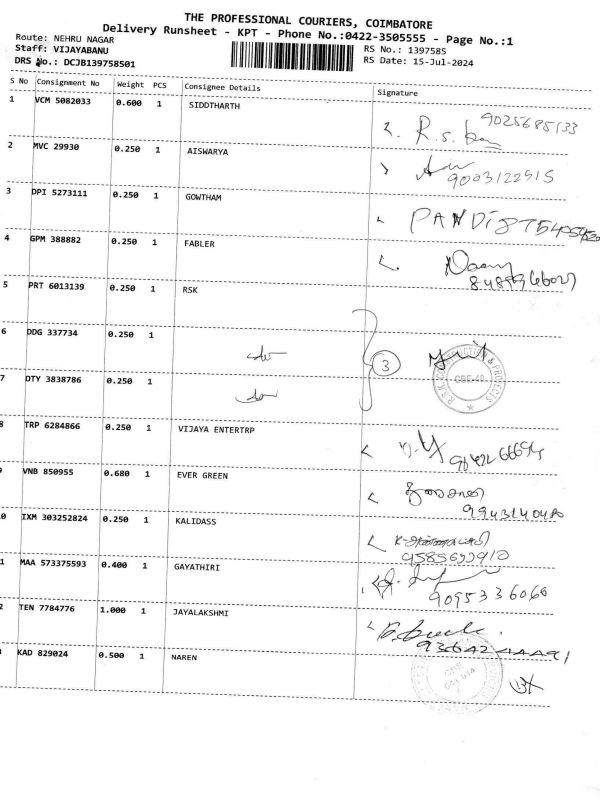 THE PROFESSIONAL COURIERS, COIMBATORE
Delivery Runsheet - KPT - Phone No.:0422-3505555 - Page No.:1
Route: NEHRU NAGAR
Staff: VIJAYABANU
RS No.: 1397585
DRS No.: DCJB139758501
RS Date: 15-Jul-2024
S No Consignment No Weight PCS Consignee Details Signature
1 VCM 5082033 0.600 1 SIDDTHARTH
9025685133
R.s.
2 MVC 29930 0.250 1 AISWARYA
9003122515
3 DPI 5273111 0.250 1 GOWTHAM
PANDi
4 GPM 388882 0.250 1 FABLER
5 PRT 6013139 0.250 1 RSK
6 DDG 337734 0.250 1
3
CBE-49
7 DTY 3838786 0.250 1
8 TRP 6284866 0.250 1 VIJAYA ENTERTRP
9 VNB 850955 0.680 1 EVER GREEN
0 IXM 303252824 0.250 1 KALIDASS
1 MAA 573375593 0.400 1 GAYATHIRI
9095336066
2 TEN 7784776 1.000 1 JAYALAKSHMI
KAD 829024 0.500 1 NAREN